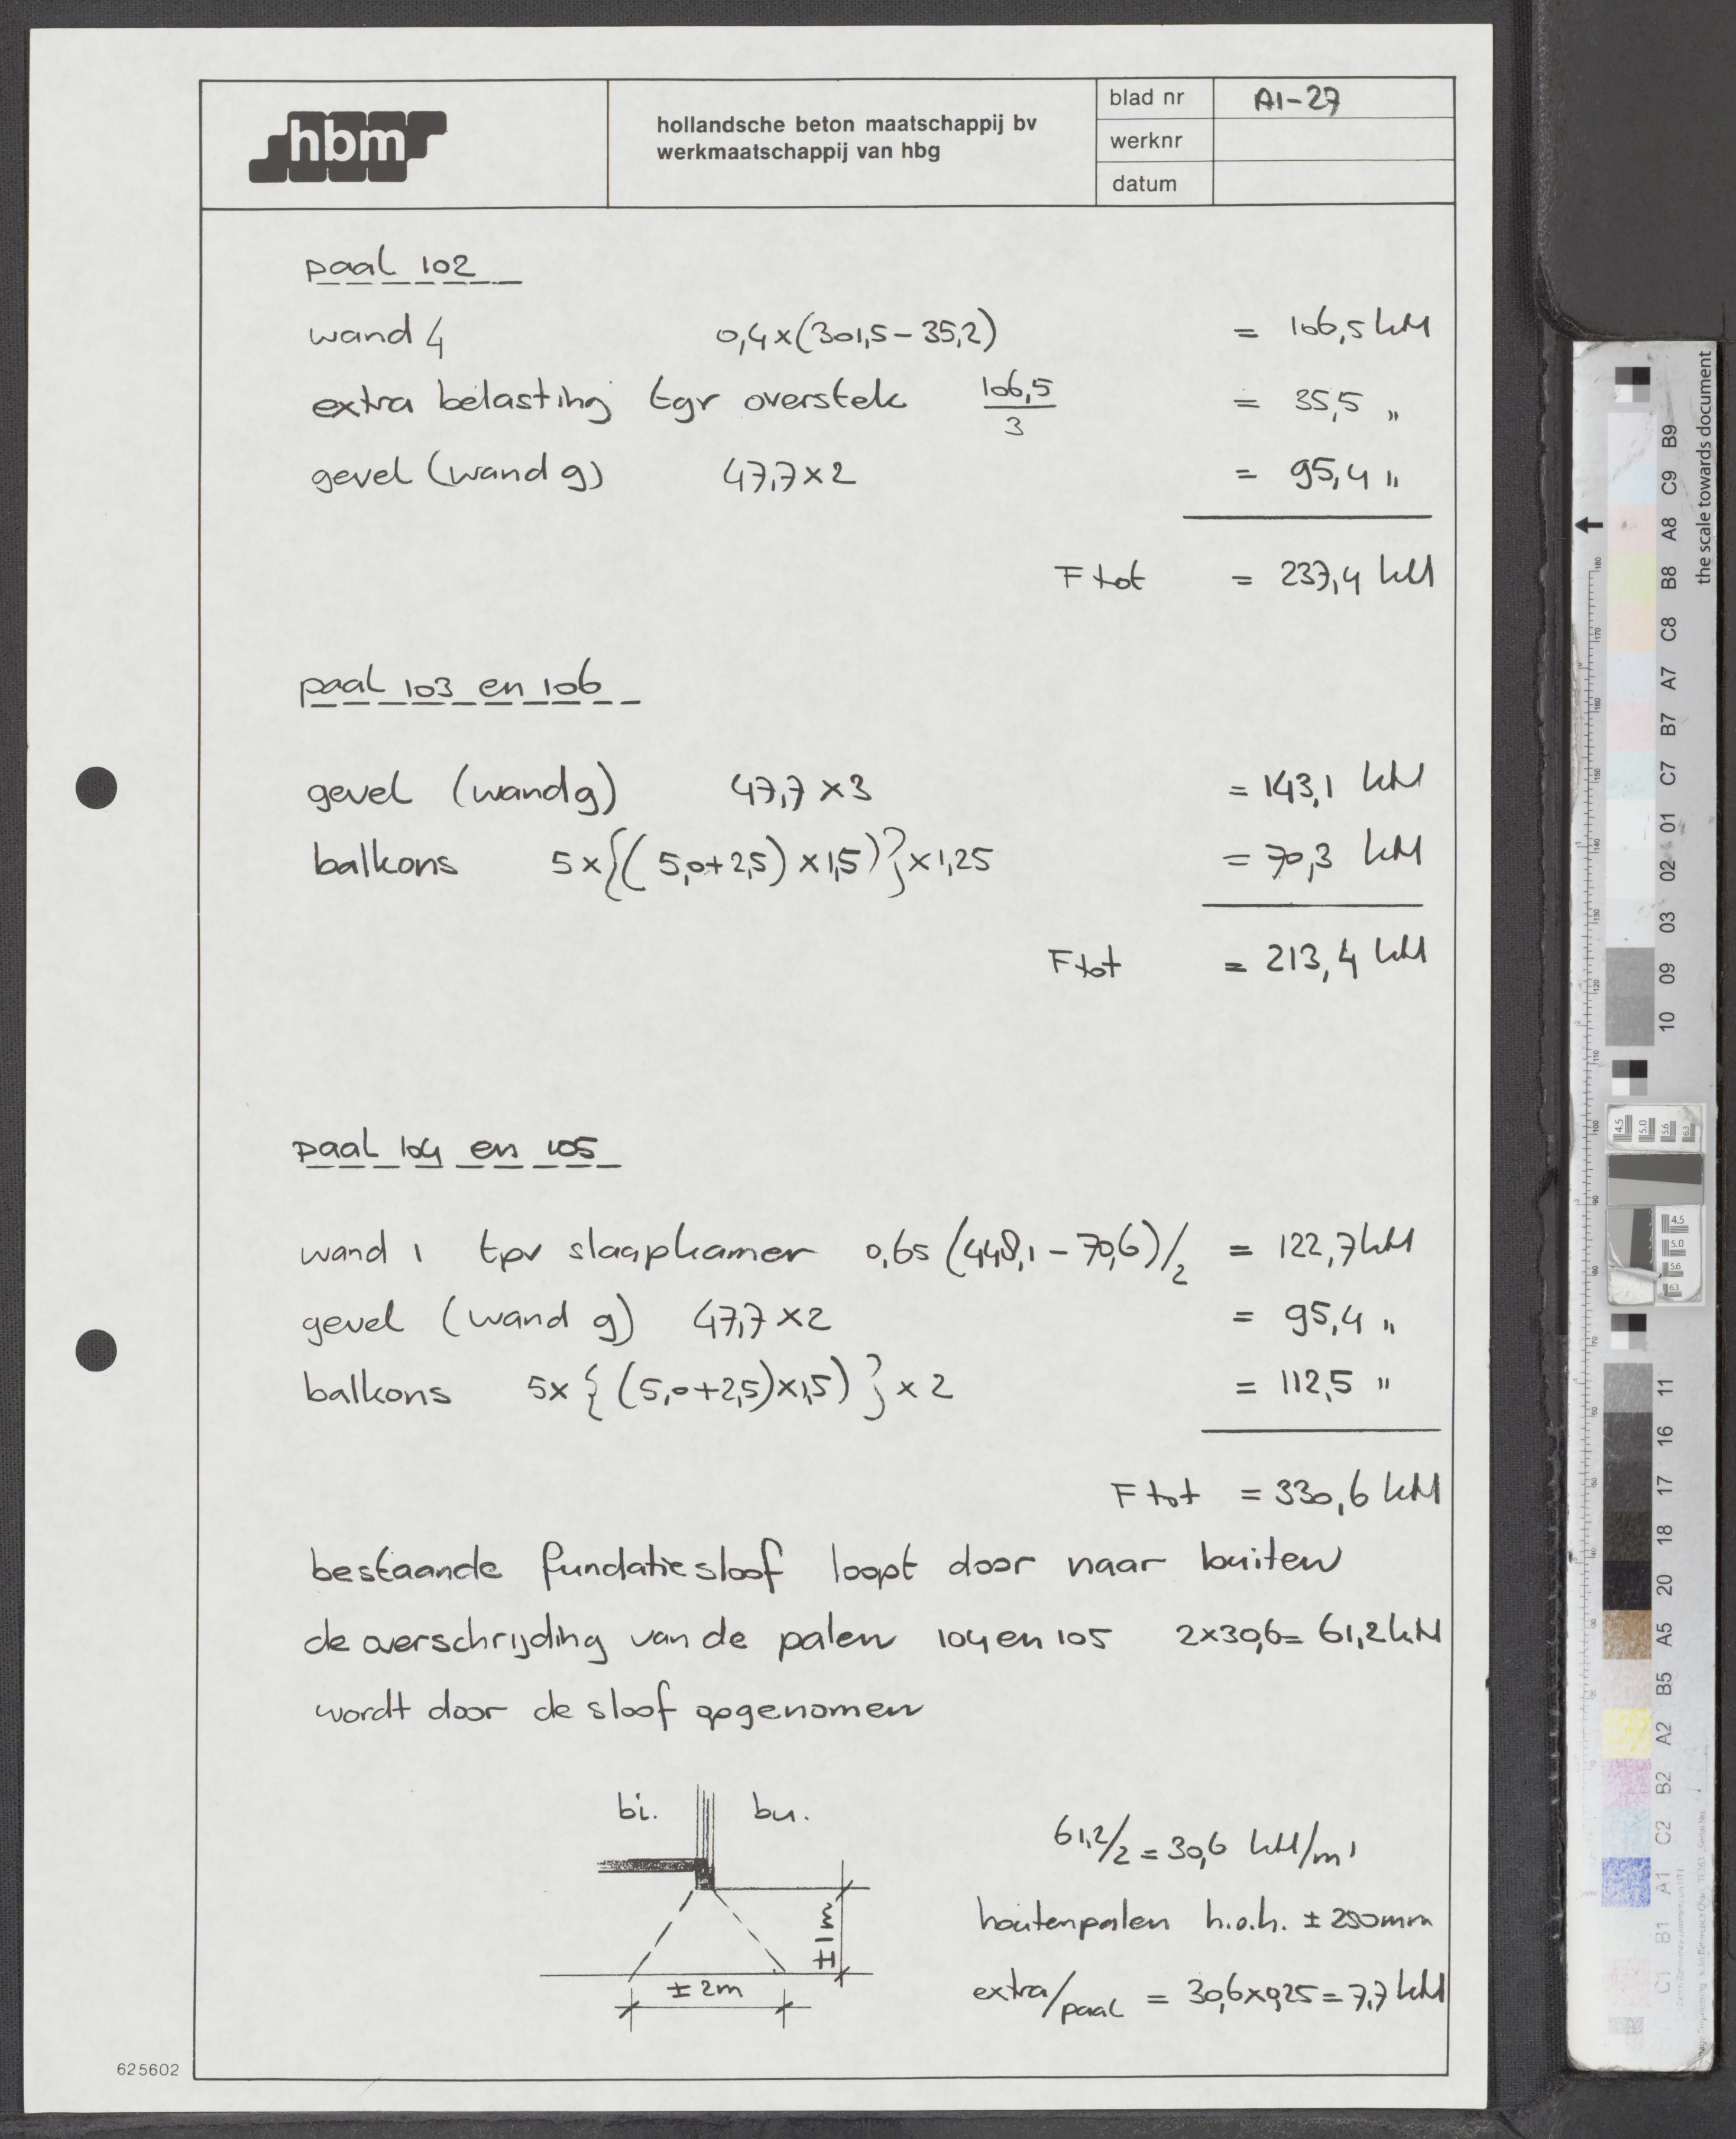 hbm
hollandsche beton maatschappij bv
werkmaatschappij van hbg
blad nr A1-27
werknr
datum
paal 102
wand 4 0,4x(301,5-35,2) = 106,5 kN
extra belasting tgv overstek 106,5/3 = 35,5 "
gevel (wand g) 47,7x2 = 95,4 "
F tot = 237,4 kN
paal 103 en 106
gevel (wand g) 47,7 x3 = 143,1 kN
balkons 5x{(5,0+2,5) x1,5)}x1,25 = 70,3 kN
F tot = 213,4 kN
paal 104 en 105
wand 1 tpv slaapkamer 0,65 (448,1-70,6)/2 = 122,7 kN
gevel (wand g) 47,7 x2 = 95,4 "
balkons 5x{(5,0+2,5)x1,5)}x2 = 112,5 "
F tot = 330,6 kN
bestaande fundatiesloof loopt door naar buiten
de overschrijding van de palen 104 en 105 2x30,6= 61,2 kN
wordt door de sloof opgenomen
bi. bu.
±1m
±2m
61,2/2 = 30,6 kN/m'
houten palen h.o.h. ± 250mm
extra/paal = 30,6x0,25=7,7 kN
625602
the scale towards document
B9
C9
A8
B8
C8
A7
B7
C7
01
02
03
09
10
11
16
17
18
20
A5
B5
A2
B2
C2
A1
B1
C1
4.5
5.0
5.6
6.3
4.5
5.0
5.6
6.3